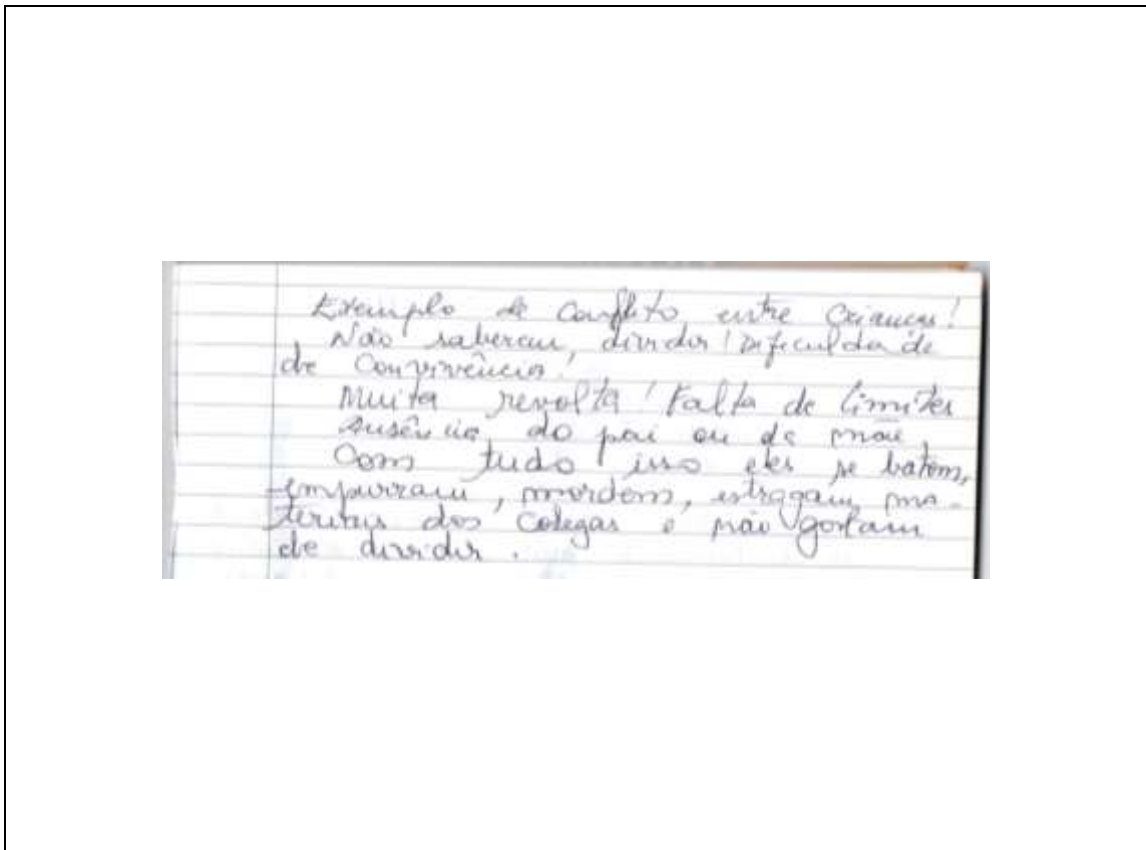 Exemplo de Conflito entre Crianças!
Não saberem, dividir! Dificuldade
de Convivência!
Muita revolta! Falta de limites
Ausência do pai ou da mãe,
Com tudo isso eles se batem,
empurram, mordem, estragam ma-
teriais dos colegas e não gostam
de dividir.